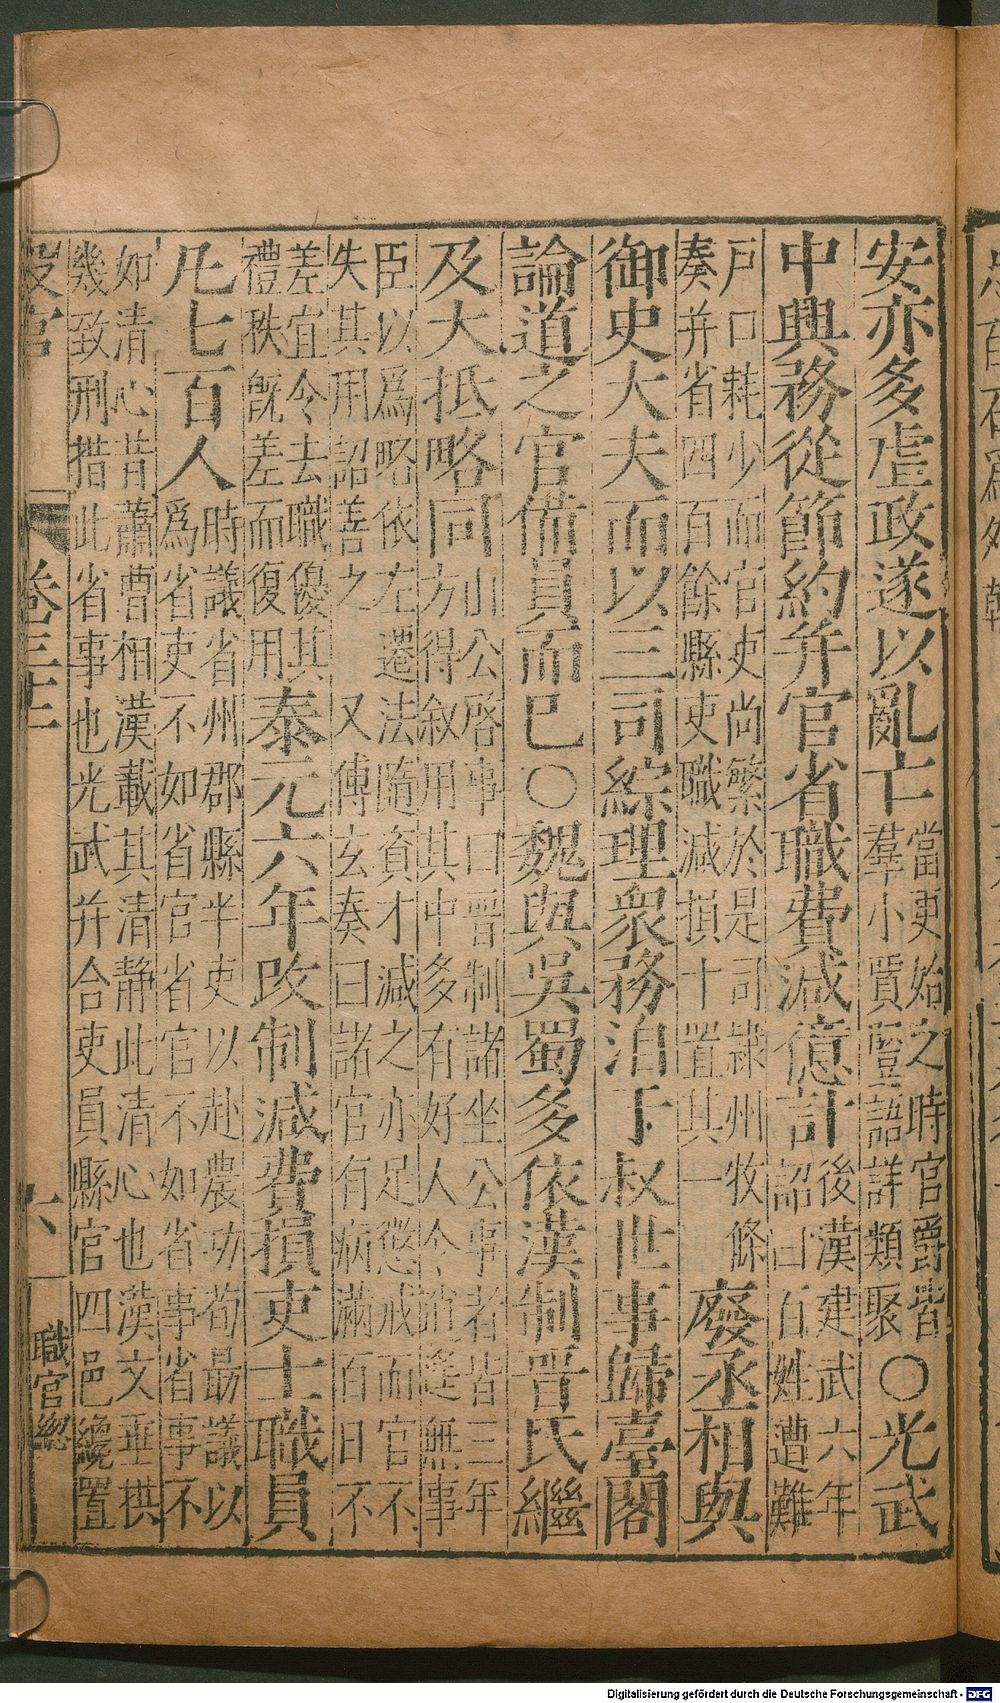 安亦多虐政遂以亂亡當更始之時官爵皆
羣小賈豎語詳類聚○光武
中興務從節約并官省職費減億計後漢建武六年
詔曰百姓遭難
戸口耗少而官吏尚繁於是司隷州牧條
奏并省四百餘縣吏職減損十置其一廢丞相與
御史大夫而以三司綜理衆務洎于叔世事歸臺閣
論道之官備員而巳○魏與吳蜀多依漢制晋氏繼
及大抵略同山公啓事曰晋制諸坐公事者皆三年
方得叙用其中多有好人令逍遥無事
臣以爲略依左遷法隨資才減之亦足懲戒而官不
失其用詔善之 又傅玄奏曰諸官有病滿百日不
差宜令去職優其
禮秩旣差而復用泰元六年改制減費損吏士職員
凡七百人時議省州郡縣半吏以赴農功荀勗議以
爲省吏不如省官省官不如省事省事不
如清心昔蕭曹相漢載其清静此清心也漢文垂拱
幾致刑措此省事也光武并合吏員縣官四邑纔置
設官 卷三十二 六 職官總
Digitalisierung gefördert durch die Deutsche Forschungsgemeinschaft - DFG